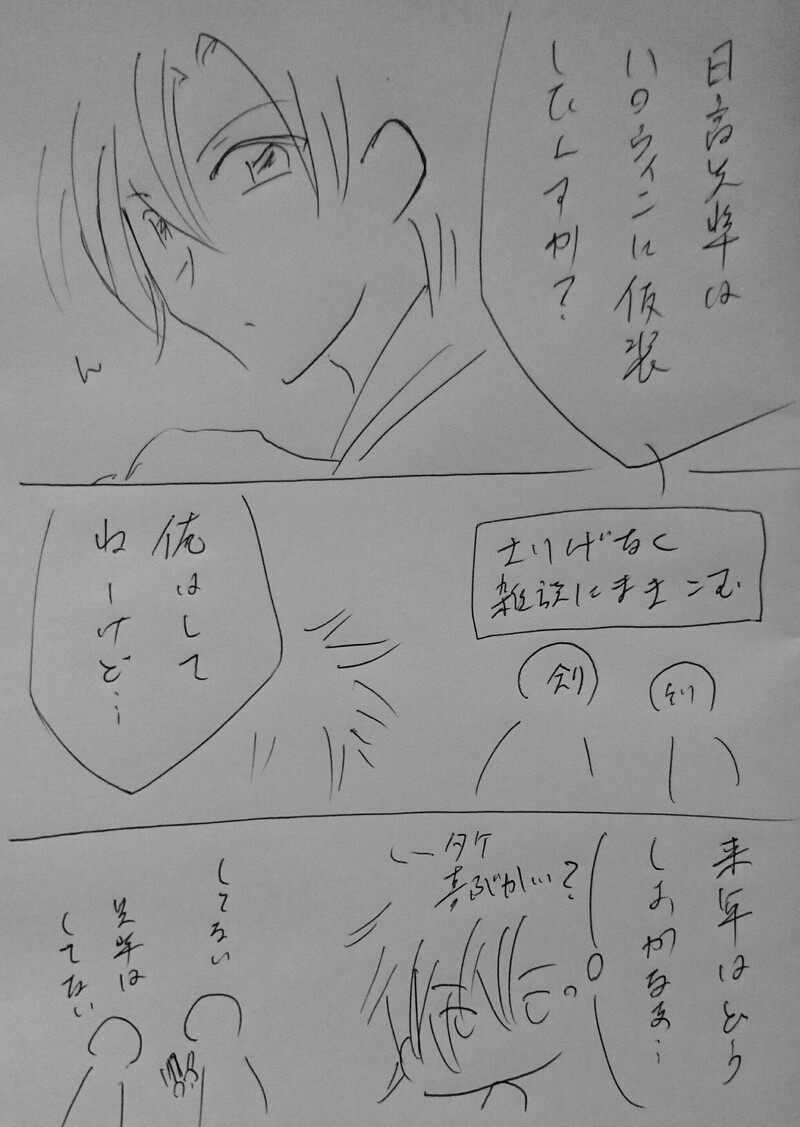 日高先輩は
ハロウィンに仮装
したんすか?
ん
さりげなく
雑談にまきこむ
剣
剣
俺はして
ねーけど…
来年はどう
しおかなぁ…
タケ
喜ぶかい?
してない
先輩は
してない